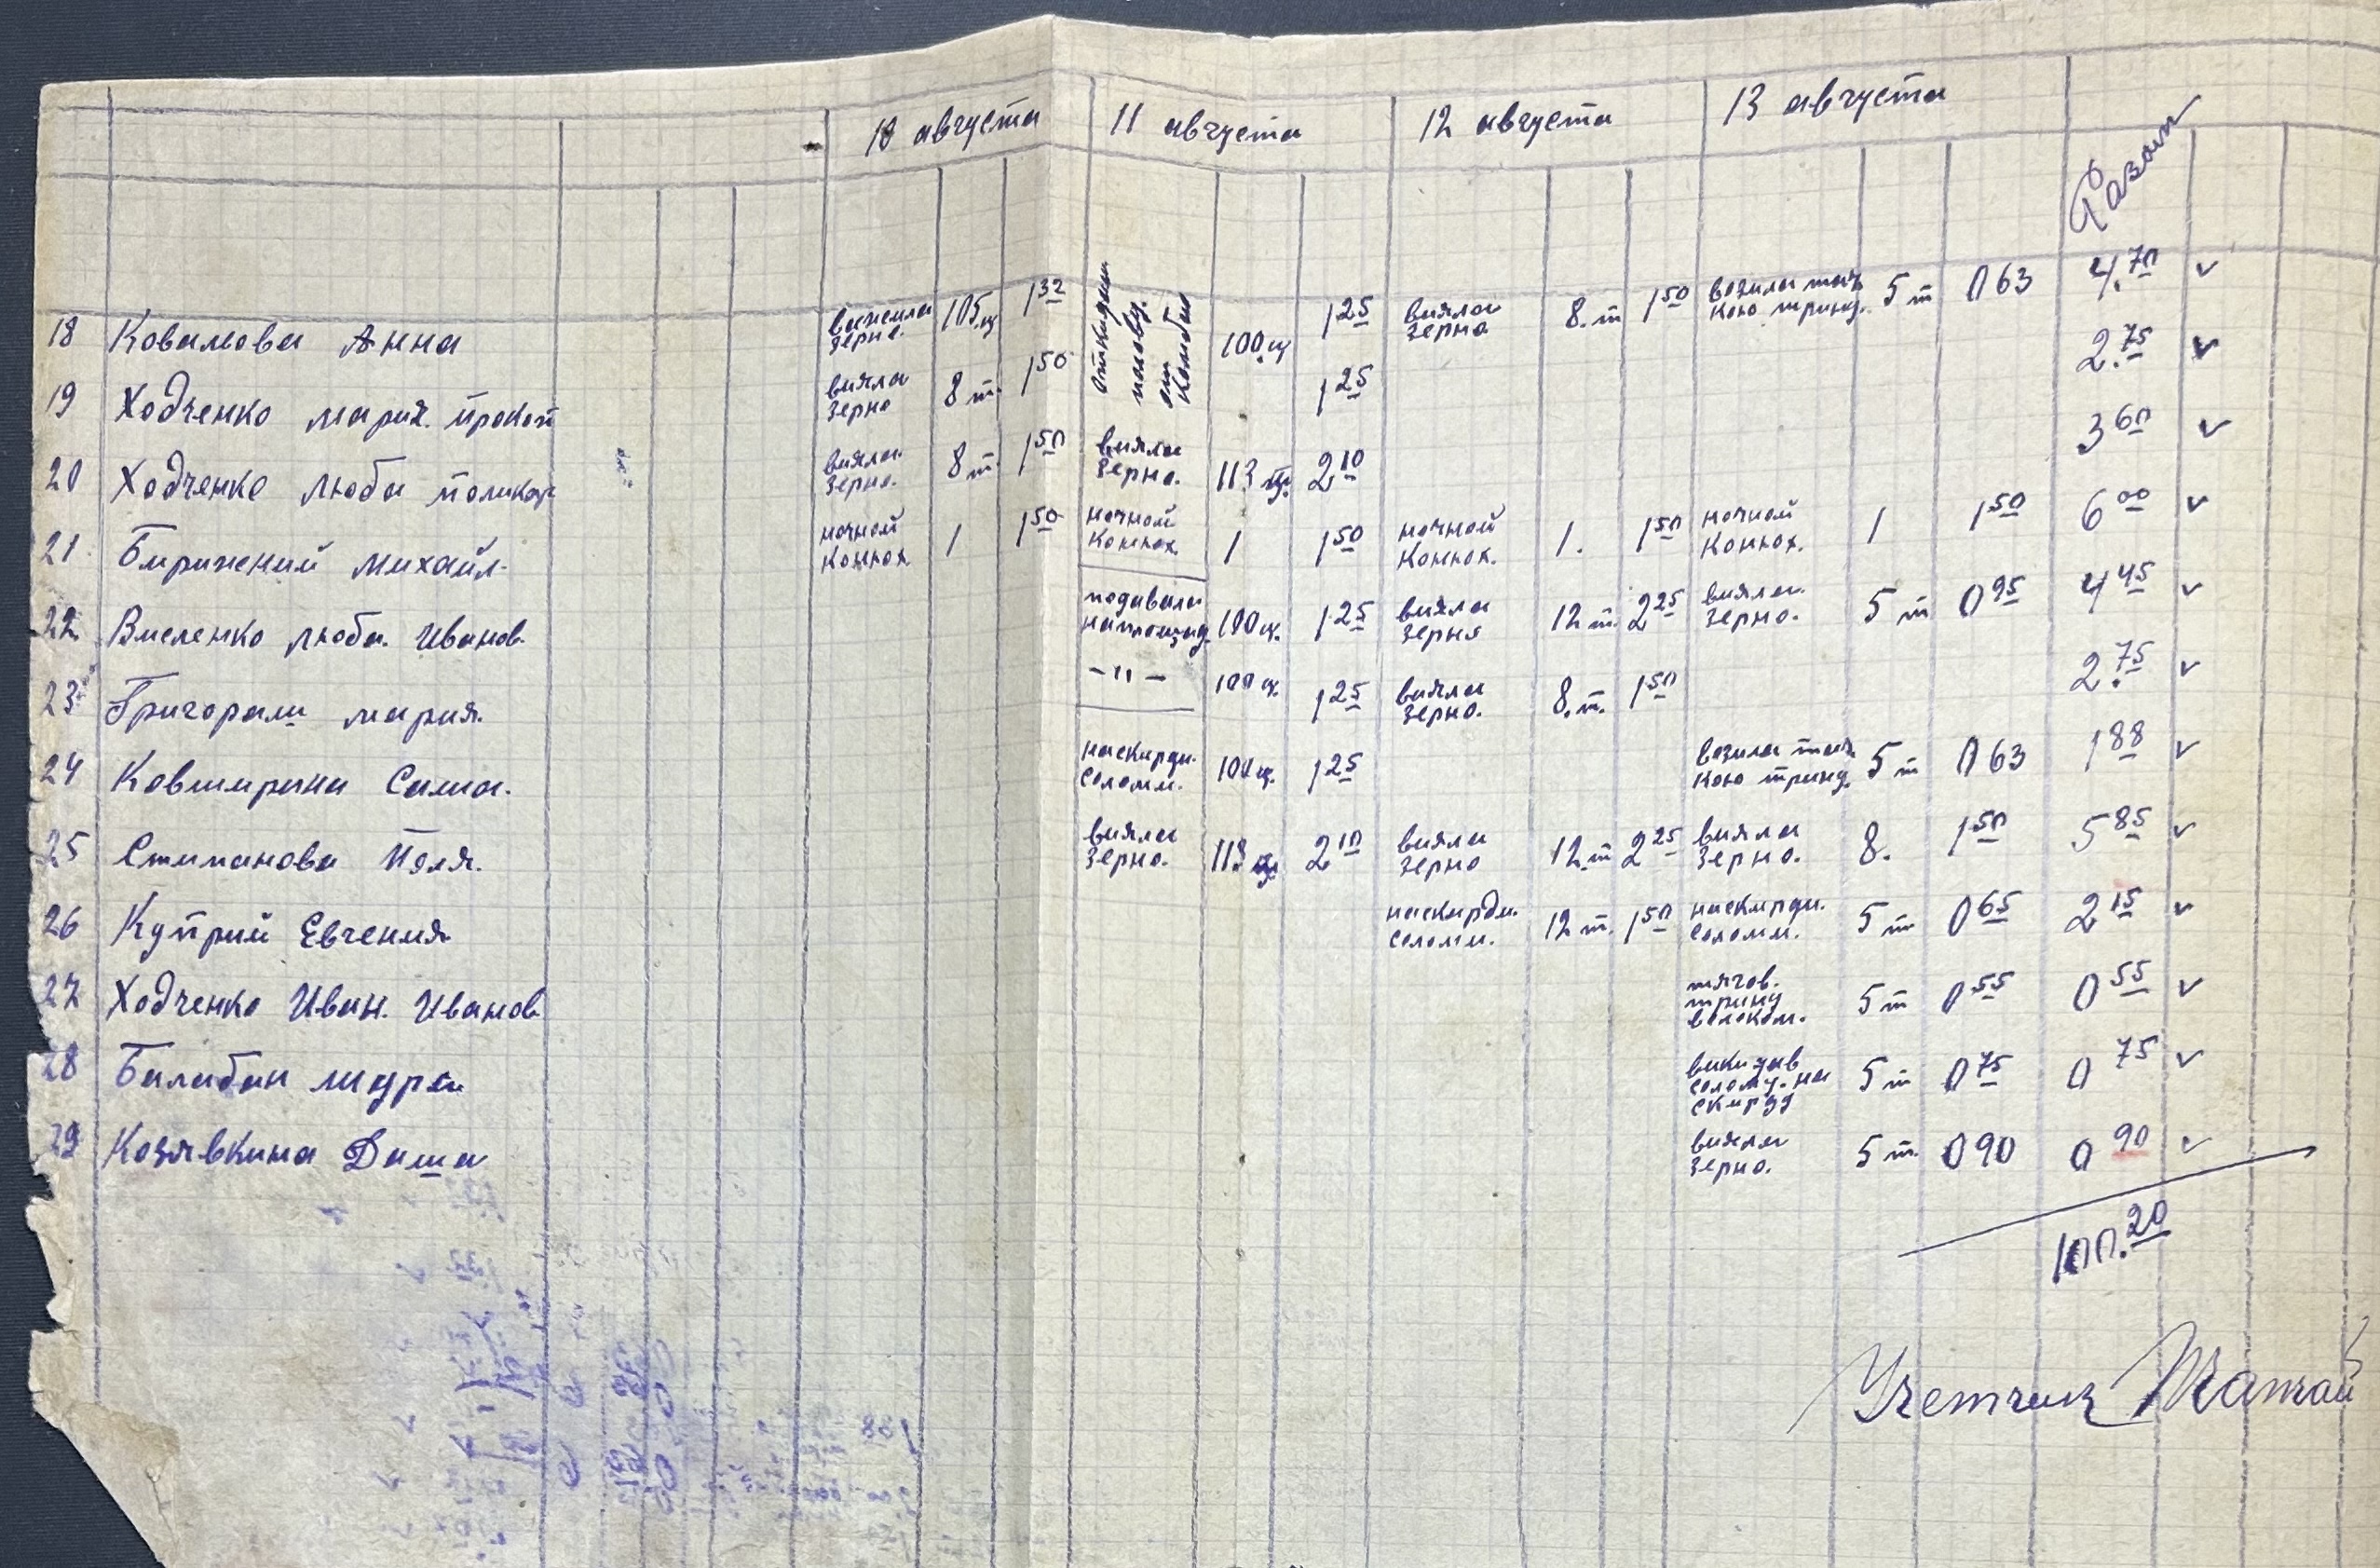 10 августа 11 августа 12 августа 13 августа Разом
18 Ковальова Анна зерно. 105 ц 1 32 100 ц 1 25 віяла зерно 8. т 1 50 возила тач кою трину. 5 т 0 63 4.70 v
откидали полову. от комбай
19 Ходченко Мария. Прокоп віяла зерно 8 т. 1 50 1 25 2.75 v
20 Ходченко Люба Поликар віяла зерно. 8 т. 1 50 віяла зерно. 113 ц. 2 10 3 60 v
21 Михайл. ночной конюх. 1 1 50 ночной конюх. 1 1 50 ночной конюх. 1. 1 50 ночной конюх. 1 1 50 6 00 v
22 Василенко Люба. Иванов. подавала 100 ц. 1 25 віяла зерня 12 т. 2 25 віяла зерно. 5 т 0 95 4 45 v
23 Григораш Мария. -"- 100 ц. 1 25 віяла зерно. 8. т. 1 50 2.75 v
24 Саша. наскирди. соломи. 100 ц. 1 25 возила тач. кою трину. 5 т 0 63 1 88 v
25 Степанова Поля. віяла зерно. 113 ц. 2 10 віяла зерно 12 т 2 25 віяла зерно. 8. 1 50 5 85 v
26 Куприй Евгения наскирди. соломи. 12 т. 1 50 наскирди. соломи. 5 т 0 65 2 15 v
27 Ходченко Иван. Иванов тягов. трину волоком. 5 т 0 55 0 55 v
28 Балабан Шура викидав солому. на скирду 5 т 0 75 0 75 v
29 Козявкина Даша віяла зерно. 5 т. 0 90 0 90 v
100.20
Учетчик